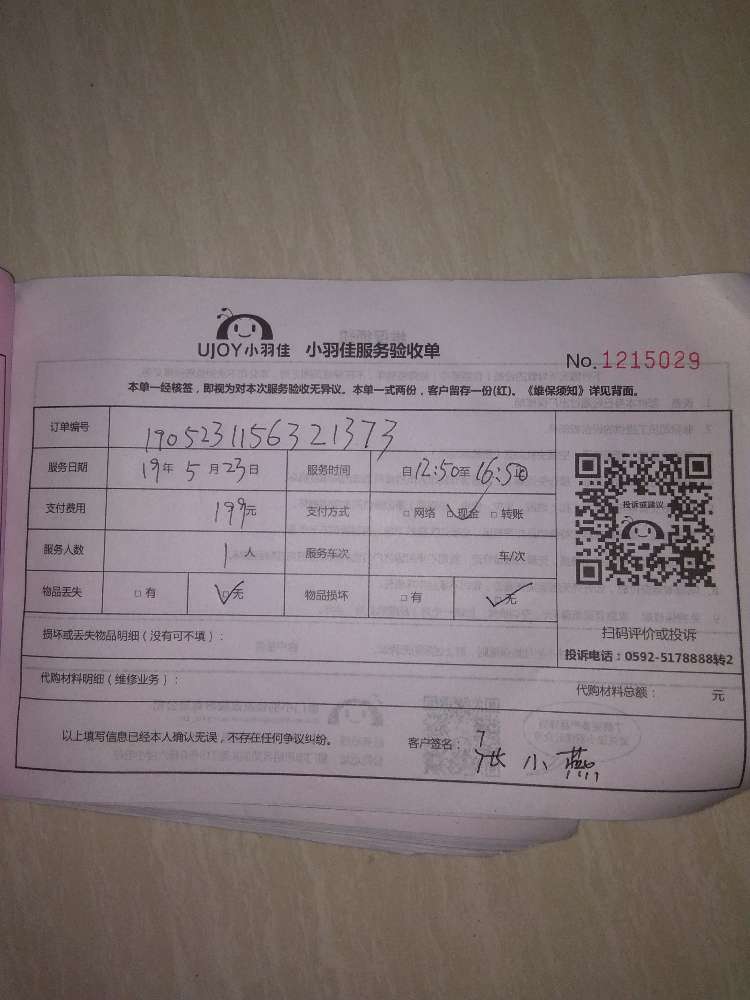 UJOY小羽佳 小羽佳服务验收单
No. 1215029
本单一经核签，即视为对本次服务验收无异议。本单一式两份，客户留存一份(红)。《维保须知》详见背面。
订单编号 1905231156321373
服务日期 19年 5月 23日 服务时间 自12:50至16:50
支付费用 199元 支付方式 □ 网络 □ 现金 □ 转账
服务人数 1人 服务车次 车/次
物品丢失 □ 有 □ 无 物品损坏 □ 有 □ 无
投诉或建议
损坏或丢失物品明细（没有可不填）：
扫码评价或投诉
投诉电话：0592-5178888转2
代购材料明细（维修业务）：
代购材料总额： 元
以上填写信息已经本人确认无误，不存在任何争议纠纷。 客户签名：
张小燕